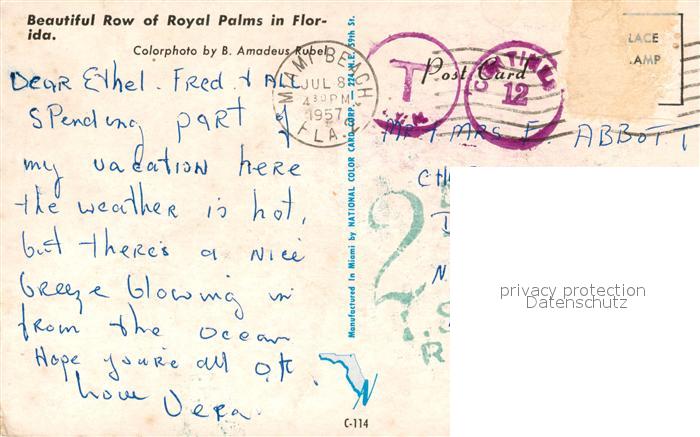 Beautiful Row of Royal Palms in Flor-
ida.
Colorphoto by B. Amadeus Rubel
Dear Ethel. Fred. & All
Spending part of
my vacation here
the weather is hot,
but there's a nice
breeze blowing in
from the ocean
Hope you're all O.K.
Love Vera.
C-114
Manufactured in Miami by NATIONAL COLOR CARD CORP. — 224 N.E. 59th St.
MIAMI BEACH
JUL 8
430 PM
1957
FLA.
T
N.Y.
Post Card
CENTIMES
12
LACE
AMP
Mr & Mrs F. ABBOTT
CH
N.
2
privacy protection
Datenschutz